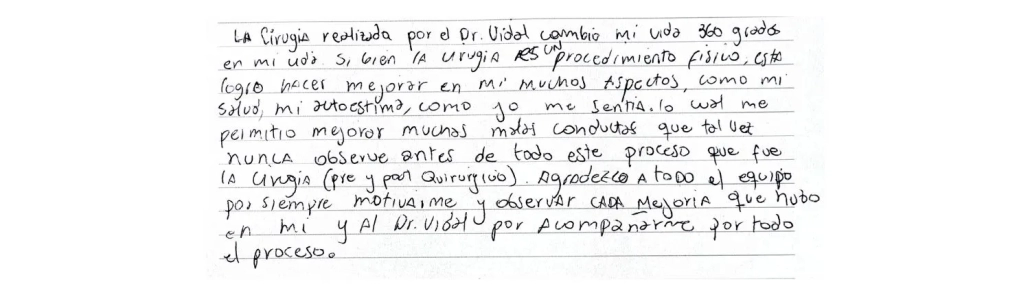 LA Cirugia realizada por el Dr. Vidal cambio mi vida 360 grados
en mi vida. Si bien LA cirugiA ES UN procedimiento fisico, esta
logro hacer mejorar en mi muchos Aspectos, como mi
salud, mi autoestima, como yo me sentiA. lo cual me
permitio mejorar muchas malas conductas que tal vez
nuncA observe antes de todo este proceso que fue
lA Cirugia (pre y post Quirurgico). Agradezco A toDO el equipo
por siempre motivarme y observAR CADA MejoriA que hubo
en mi y Al Dr. Vidal por Acompañarme por todo
el proceso.